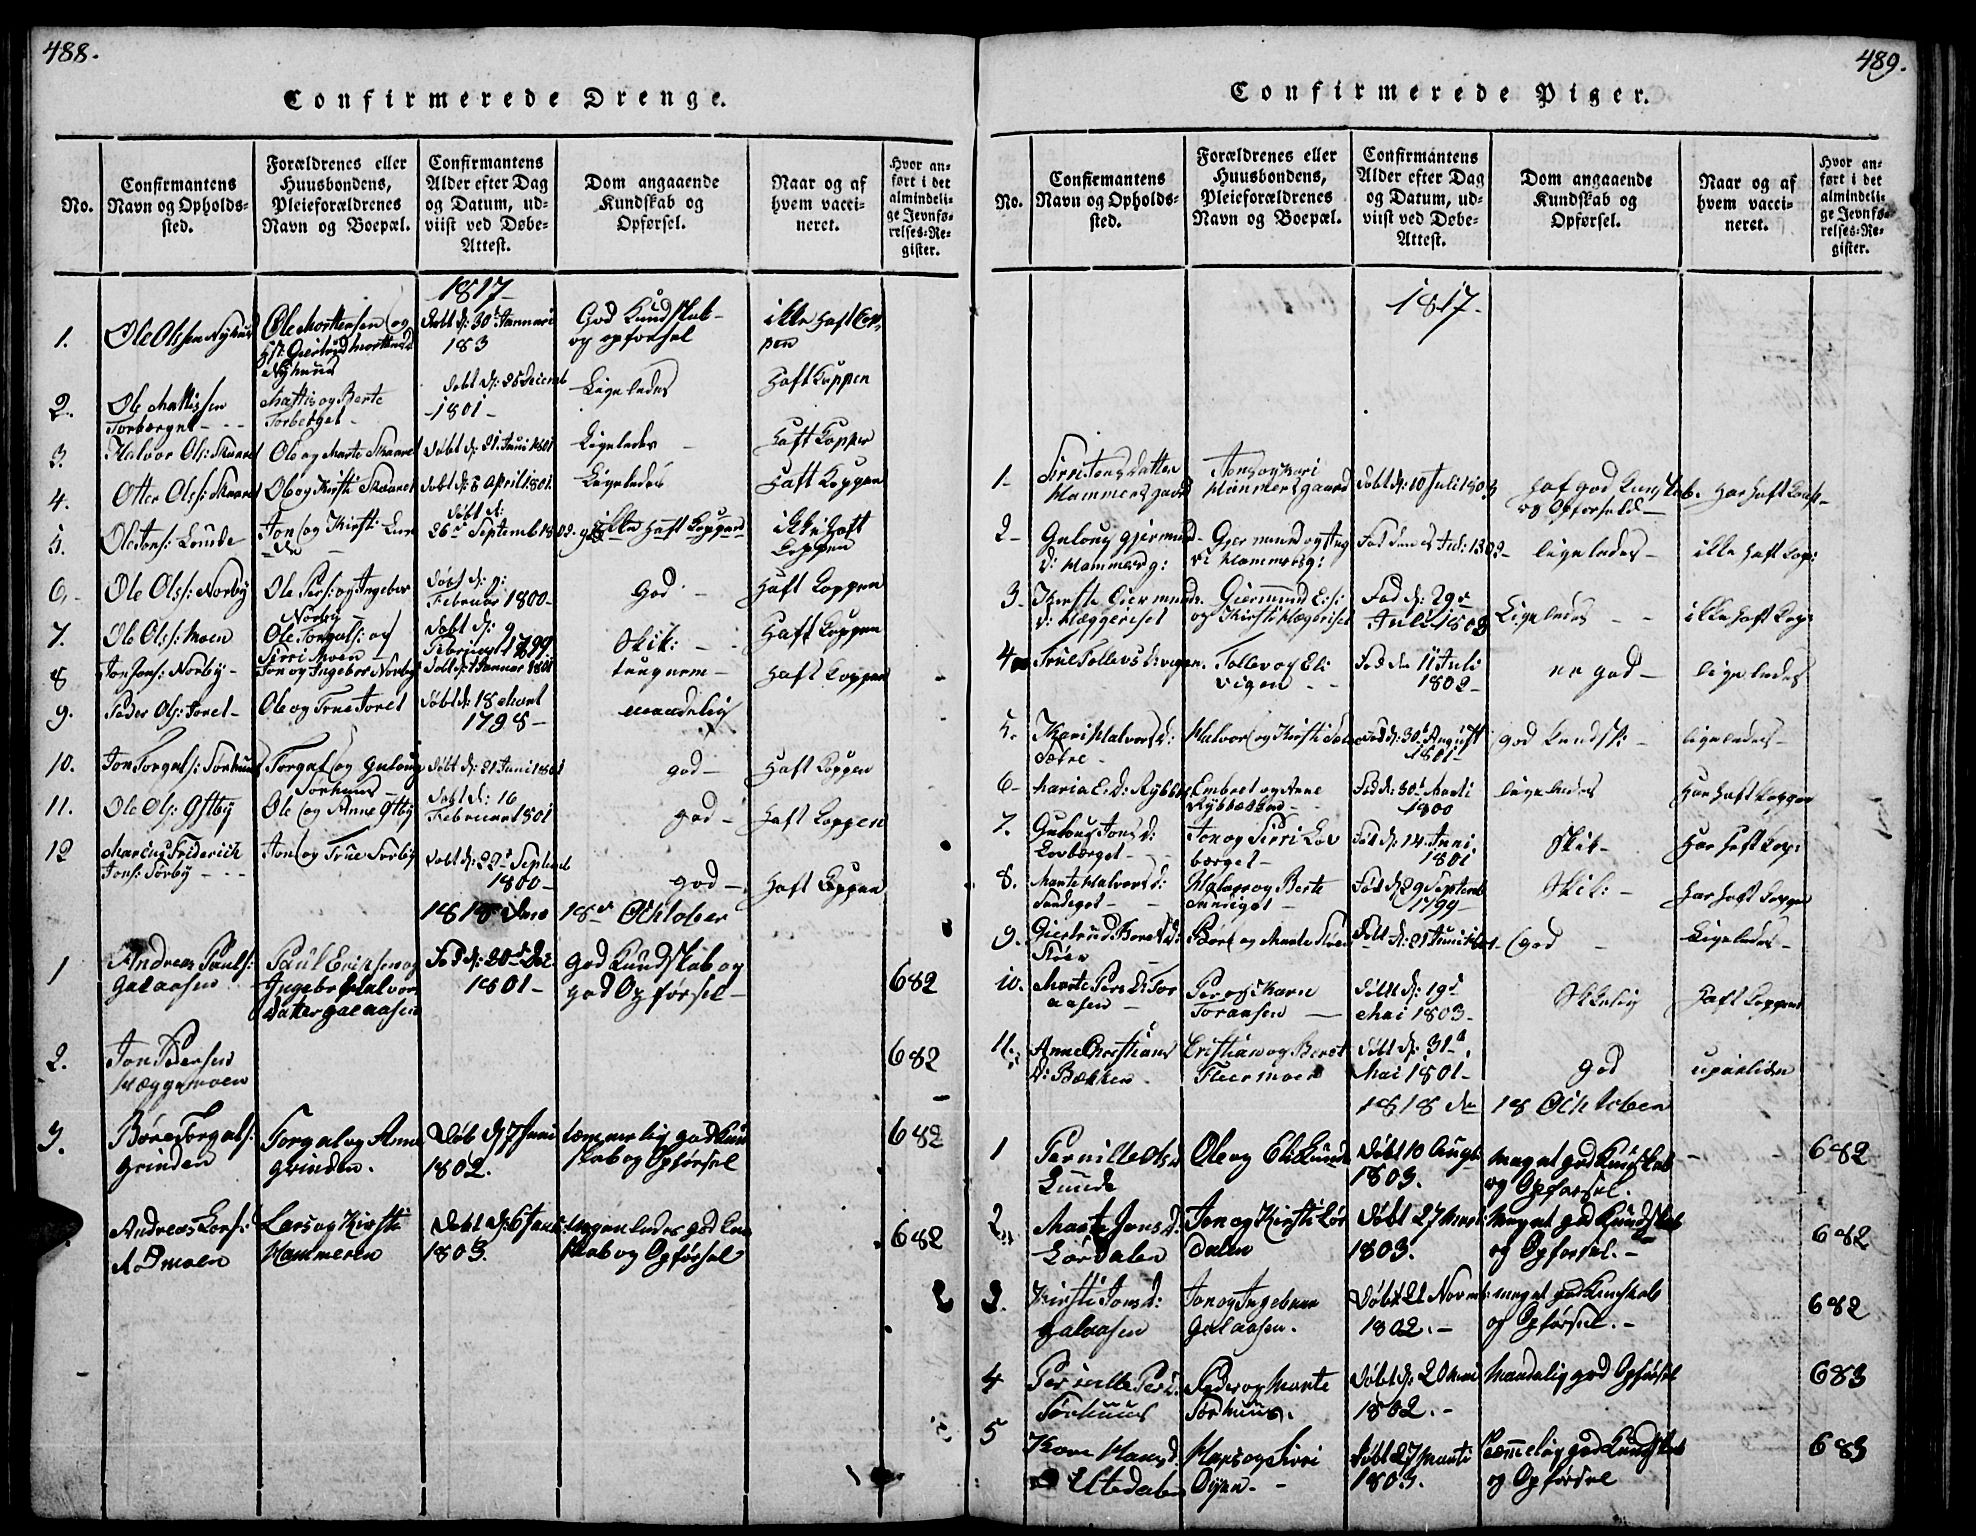 488.
Confirmerede Drenge.
No.
Confirmantens
Navn og Opholds-
sted.
Forældrenes eller
Huusbondens,
Pleieforældrenes
Navn og Boepæl.
Confirmantens
Alder efter Dag
og Datum, ud-
viist ved Døbe-
Attest.
Dom angaaende
Kundskab og
Opførsel.
Naar og af
hvem vacci-
neret.
Hvor an-
ført i det
almindeli-
ge Jevnfø-
relses-Re-
gister.
1817
1. Ole Olsen Nyhuus
Ole Mortensen og
Nyhuus
Døbt d: 30t Januari
183
God Kundskab
og opførsel
ikke haft Cop
pen
2. Ole Mattissen
Torberget
Mattis og Berte
Torberget
Døbt d: 26 Decemb
1801
Ligeledes
Haft Koppen
3. Halvor Ols: Skaaret
Ole og Marte Skaaret
Døbt d: 21 Juni 1801
Ligeledes
Haft Kopper
4. Otter Ols: Skaaret
Ole og Kirsti Skaaret
Døbt d: 8 April 1801
Ligeledes
Haft Koppen
5. Ole Jons: Lunde
Jon og Kirsti Lun
de
Døbt d:
26de Septemb 1802.
ikke haft
Coppen
6. Ole Ols: Norby
Ole Pers: og Ingebor
Norby
Døbt d: 9:
Februar 1800
God
Haft Koppen
7. Ole Ols: Moen
Ole Torgals: og
Sirri Moen
Døbt d: 9
Februar 1799
Skik:
Haft Koppen
8 Jon Jons: Norby
Jon og Ingebor Norby
Januar 1801
tungnem
Haft Koppen
9. Peder Ols: Joret
Ole og True Joret
Døbt d: 18 Mart
1798
maadelig
10. Jon Torgals: Sørhuus
Torgal og Gulaug
Sørhuus
Døbt d: 21 Juni 1801
god
Haft Koppen
11. Ole Ols: Østby
Ole og Anne Østby
Døbt d: 16
Februar 1801
god
Haft Koppen
12 Marius Friderich
Jons: Sørby
Jon og True Sørby
Døbt d: 22de Septemb
1800
god
Haft Koppen
1818 den 18de October
1 Andreas Pauls:
Galaasen
Paul Eriksen og
Ingebor Halvors
datter Galaasen
Fød d: 20de Dec.
1801
God Kundskab og
god Opførsel
682
2. Jon Pedersen
Hæggemoen
682
3. Børe Torgals:
Grinden
Torgal og Anne
Grinden.
Døb d 7 Juni
1802.
temmelig god Kund
skab og Opførsel
682
Andreas Lars:
A moen
Lars og Kirsti
Hammeren
1803.
god Kun
skab og Opførsel
682
489.
Confirmerede Piger.
No.
Confirmantens
Navn og Opholds-
sted.
Forældrenes eller
Huusbondens,
Pleieforældrenes
Navn og Boepæl.
Confirmantens
Alder efter Dag
og Datum, ud-
viist ved Døbe-
Attest.
Dom angaaende
Kundskab og
Opførsel.
Naar og af
hvem vacci-
neret.
Hvor an-
ført i det
almindeli-
ge Jevnfø-
relses-Re-
gister.
1817.
1. Sirri Jonsdatter
Hammersgaard
Jons og Kari
Hammersgaard
Døbt d: 10 Juli 1803
god Kundskab
og Opførsel
Har haft Kop
2 Gulaug Gjermund
d: Hammersg:
Gjermund og
Hammersg:
ligeledes
ikke haft Kop:
3. Kirsti Giermunds
d: Hæggeriset
Giermund
og Kirsti Hægeriset
Fød d: 29de
Juli 1803
Ligeledes
ikke haft Kop:
4 True Tollevs d: vigen
Tollev og Eli
vigen
Fød den 11 Juli
1802
god
ligeledes
5. Kari Halvorsd:
Sætre
Halvor og Kirsti Sætre
Fød d: 30t August
1801
god Kundsk:
ligeledes
6. Maria E.d: Rybb
Embret og Anne
Fød d: 30t Marti
1800
ligeledes
Har haft koppen
7. Gulaug Jonsd:
Lovberget
Jon og Sirri Lov
berget
Fød d: 14 Juni
1801
Skik
Har haft Kop:
8. Marte Halvorsd:
Halvor og Berte
Fød d 29 Septemb
1799
Skik:
Har haft Koppen
9. Giertrud Børesd:
Støen
Børe og Marte Støen
Døbt d: 21 Juni 1801.
God
Ligeledes
10. Marte Persd: Tor
aasen
Per og Karn
Toraasen
Døbt d: 19de
Mai 1803
Skikelig
Haft Koppen
11. Anne Christians
d: Bækken
Cristian og Beret
Fleermoen
Døbt d: 31te
Mai 1801
god
1818 den 18 October
1 Pernille Olsd
Lunde
Ole og Eli Lunde
Døbt 10 Augt
1803.
meget god Kundskab
og Opførsel.
682
2 Marte Jonsd:
Lørdalen
Jon og Kirsti Lør
dalen
Døbt 27 Mart
1803.
meget god Kundskab
og Opførsel.
682
3. Kirsti Jonsd:
Galaasen
Jon og Ingeborr
Galaasen.
Døbt 21 Novmb
1802.
meget god Kundskab
og Opførsel.
682
4 Pernille Persd.
Sørhuus
Peder og Marte
Sørhuus.
Døbt d: 20 Mai
1802.
Maadelig god Opførsel
683
5 Kari Hansd
Eltedalen
Hans og Sirri
Øyen.
Døbt 27 Marti
1803.
Temmelig god Kundskab
og Opførsel
683